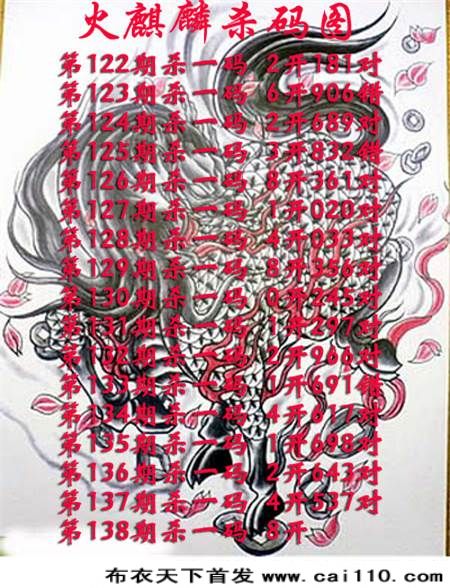 火麒麟杀码图
第122期杀一码 2开181对
第123期杀一码 6开906错
第124期杀一码 2开689对
第125期杀一码 3开832错
第126期杀一码 8开361对
第127期杀一码 1开020对
第128期杀一码 4开033对
第129期杀一码 8开356对
第130期杀一码 0开245对
第131期杀一码 1开297对
第132期杀一码 2开966对
第133期杀一码 1开691错
第134期杀一码 4开617对
第135期杀一码 1开698对
第136期杀一码 2开643对
第137期杀一码 4开537对
第138期杀一码 8开
布衣天下首发 www.cai110.com